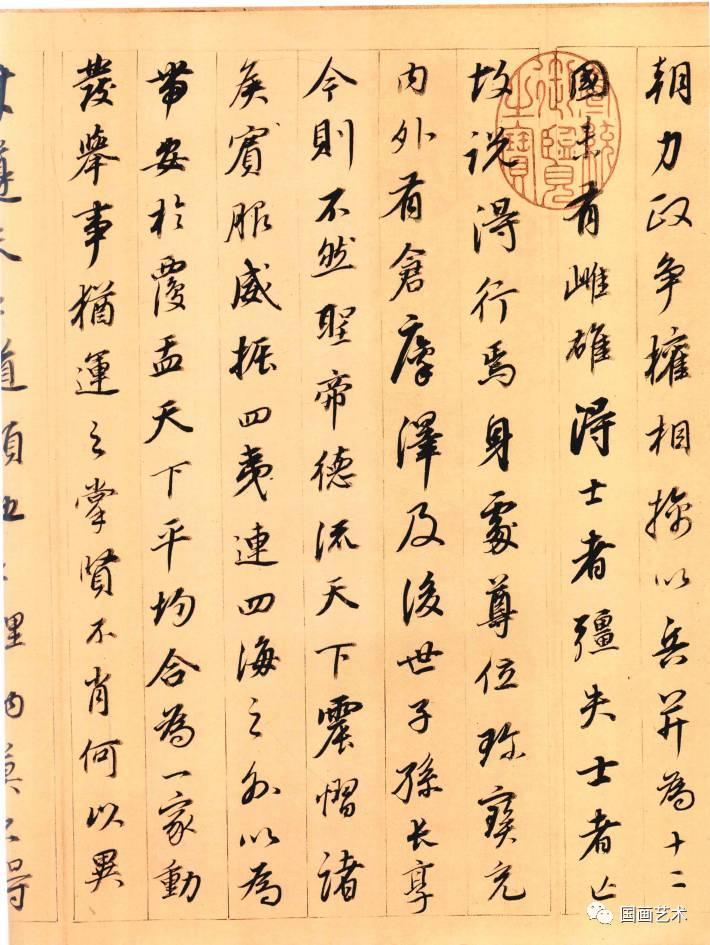 朝力政争權相擒以兵并為十二
國未有雌雄得士者彊失士者亡
故說得行焉身處尊位珎寳充
内外有倉廩澤及後世子孫長享
今則不然聖帝德流天下震慴諸
矦賓服威振四夷連四海之外以為
帶安於覆盂天下平均合為一家動
發舉事猶運之掌賢不肖何以異
遵天之道順地之理物莫不得
宣統御覽之寶
国画艺术